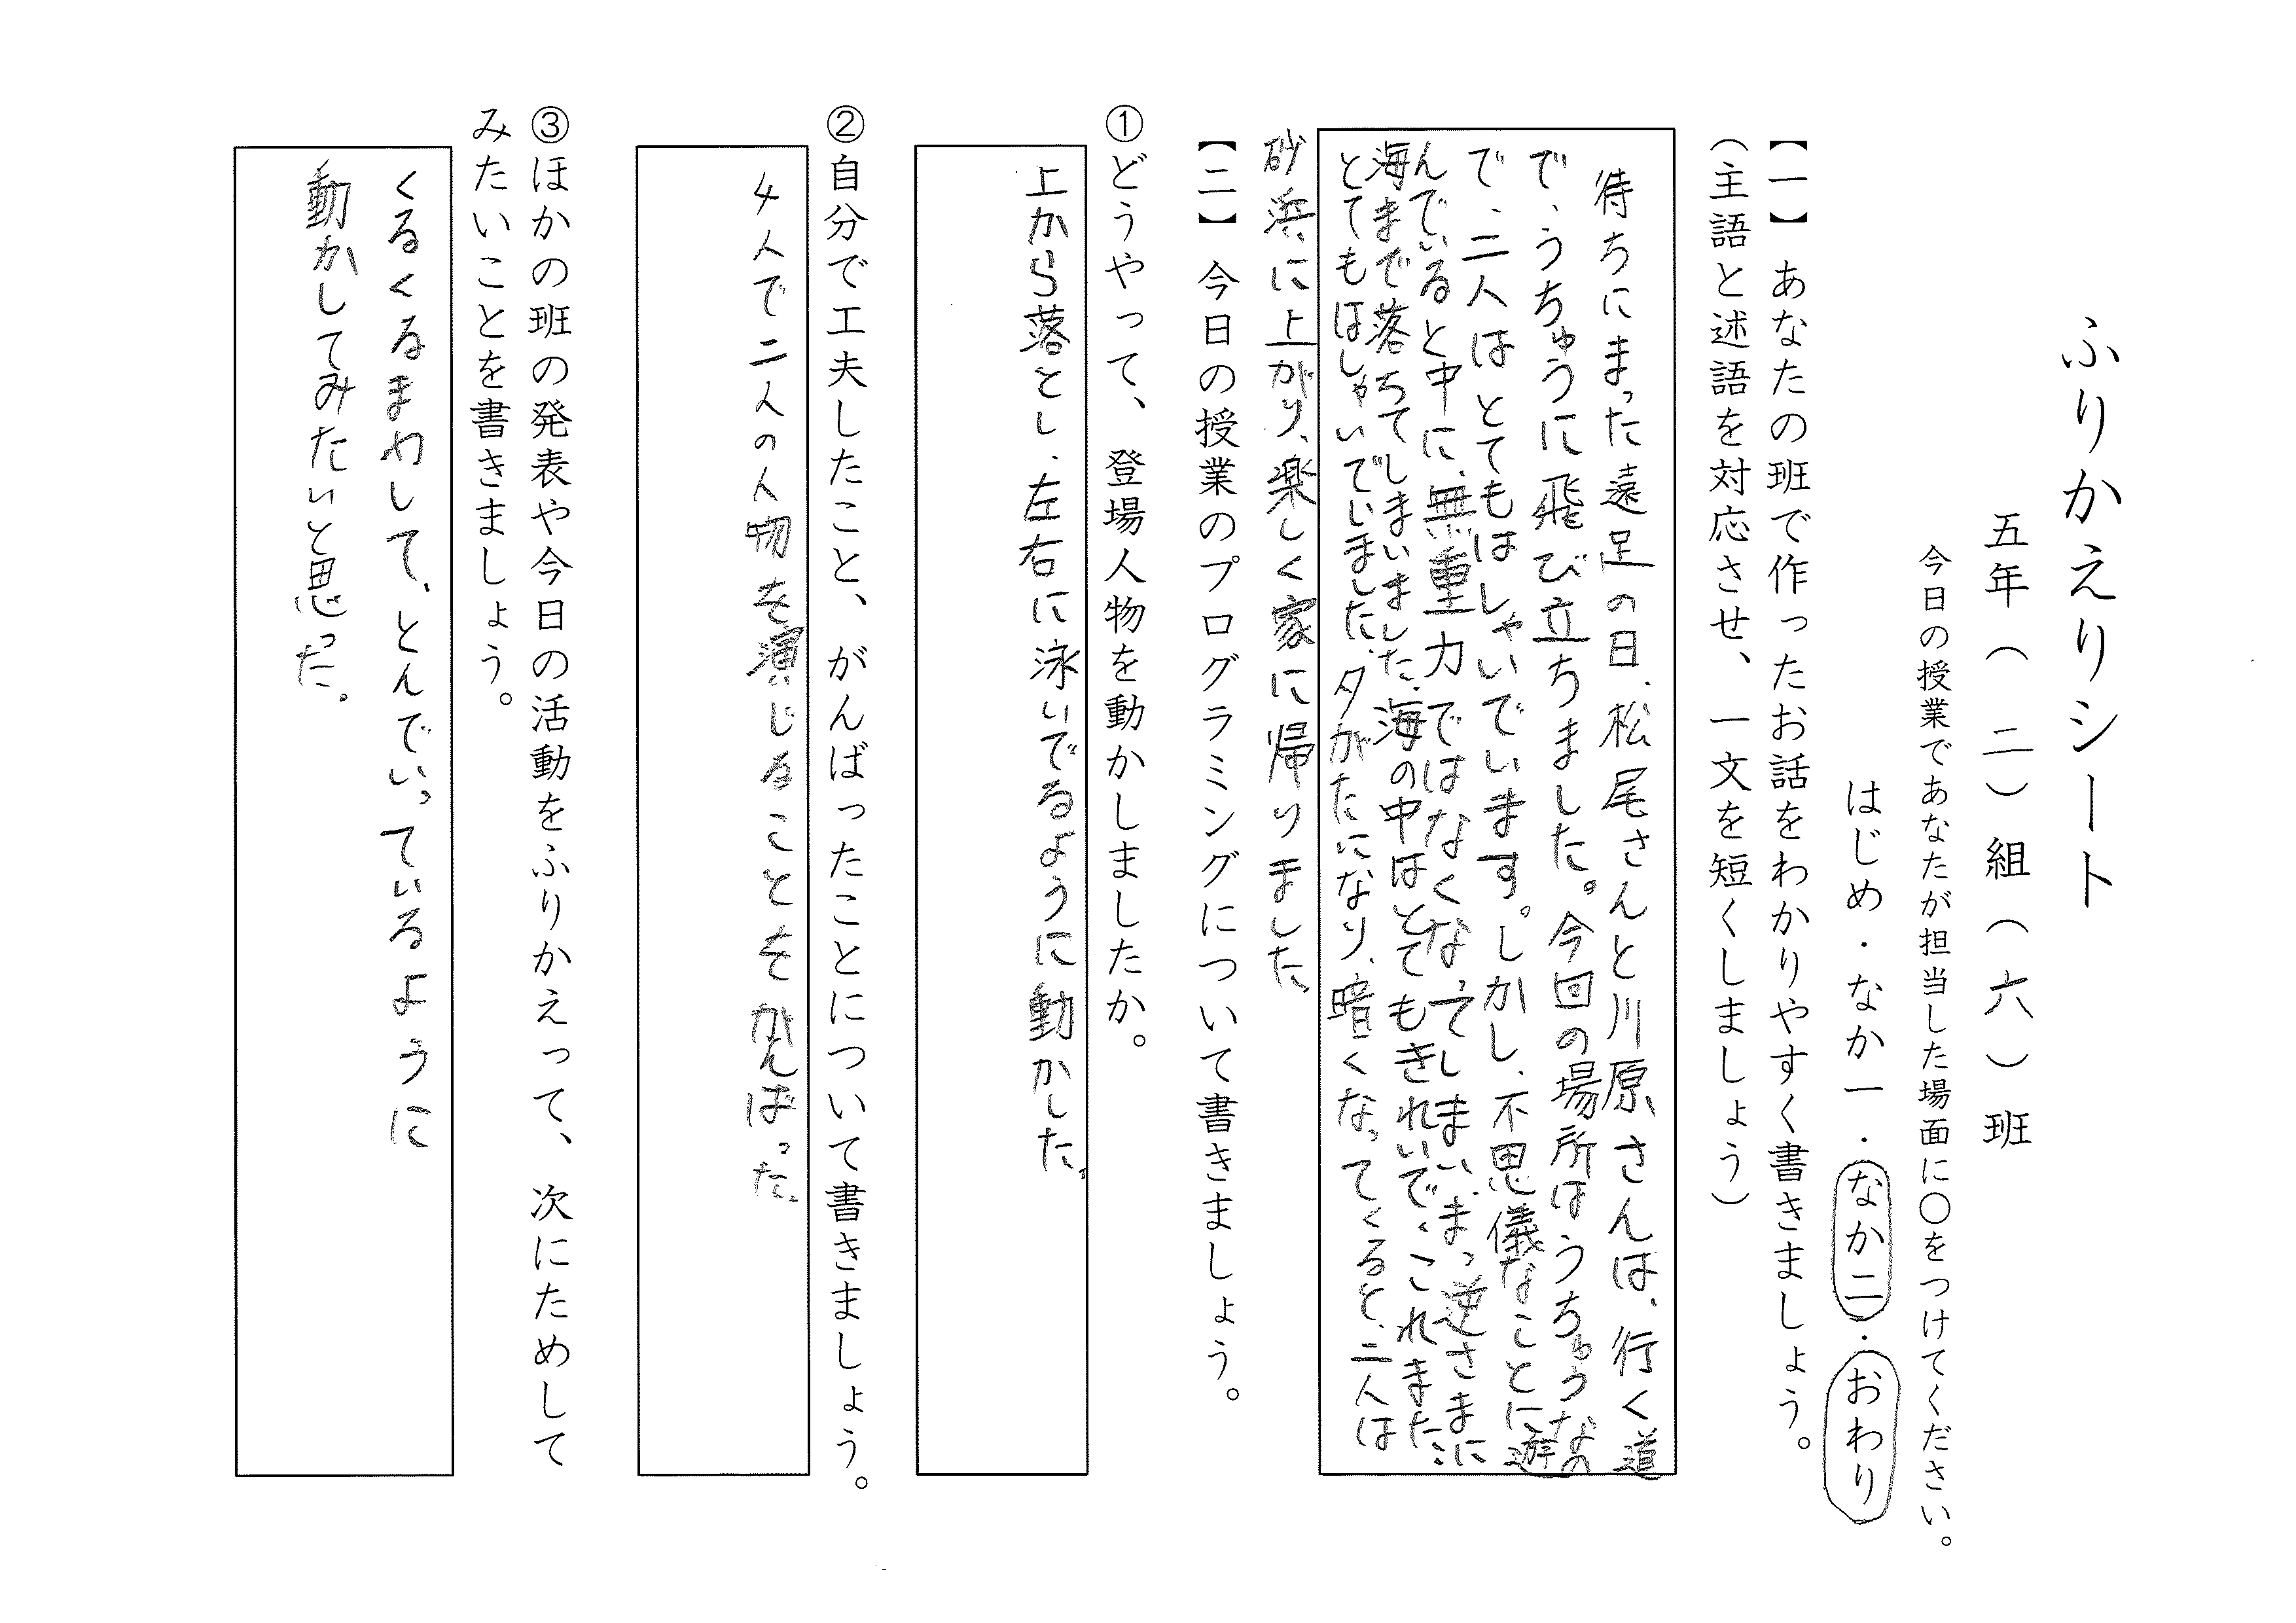 ふりかえりシート
五年（二）組（六）班
今日の授業であなたが担当した場面に○をつけてください。
はじめ・なか一・なか二・おわり
【一】あなたの班で作ったお話をわかりやすく書きましょう。
（主語と述語を対応させ、一文を短くしましょう）
待ちにまった遠足の日、松尾さんと川原さんは、行く道
で、うちゅうに飛び立ちました。今回の場所はうちゅうなの
で、二人はとてもはしゃいでいます。しかし、不思儀なことに遊
んでいると中に、無重力ではなくなってしまい、まっ逆さまに
海まで落ちてしまいました。海の中はとてもきれいで、これまた、
とてもはしゃいでいました。夕がたになり、暗くなってくると、二人は
砂浜に上がり、楽しく家に帰りました。
【二】今日の授業のプログラミングについて書きましょう。
①どうやって、登場人物を動かしましたか。
上から落とし、左右に泳いでるように動かした。
②自分で工夫したこと、がんばったことについて書きましょう。
4人で二人の人物を演じることをがんばった。
③ほかの班の発表や今日の活動をふりかえって、次にためして
みたいことを書きましょう。
くるくるまわして、とんでいっているように
動かしてみたいと思った。